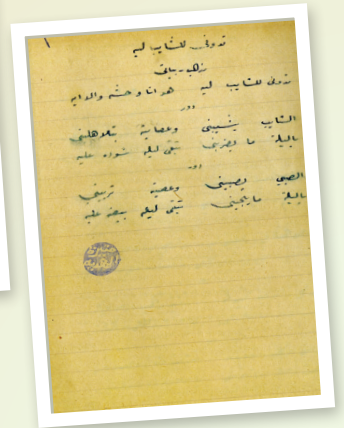 ١
تدونى للشايب ليه
مذهب
تدونى للشايب ليه هو انا وحشه والدايه
دور
الشايب يشيبنى وعصايته
ياليلة ما يضربنى تبقى ليله سوده عليه
دور
الصبى يصبينى وعصيته
ياليلة ما يجينى تبقى ليله بيضه عليه